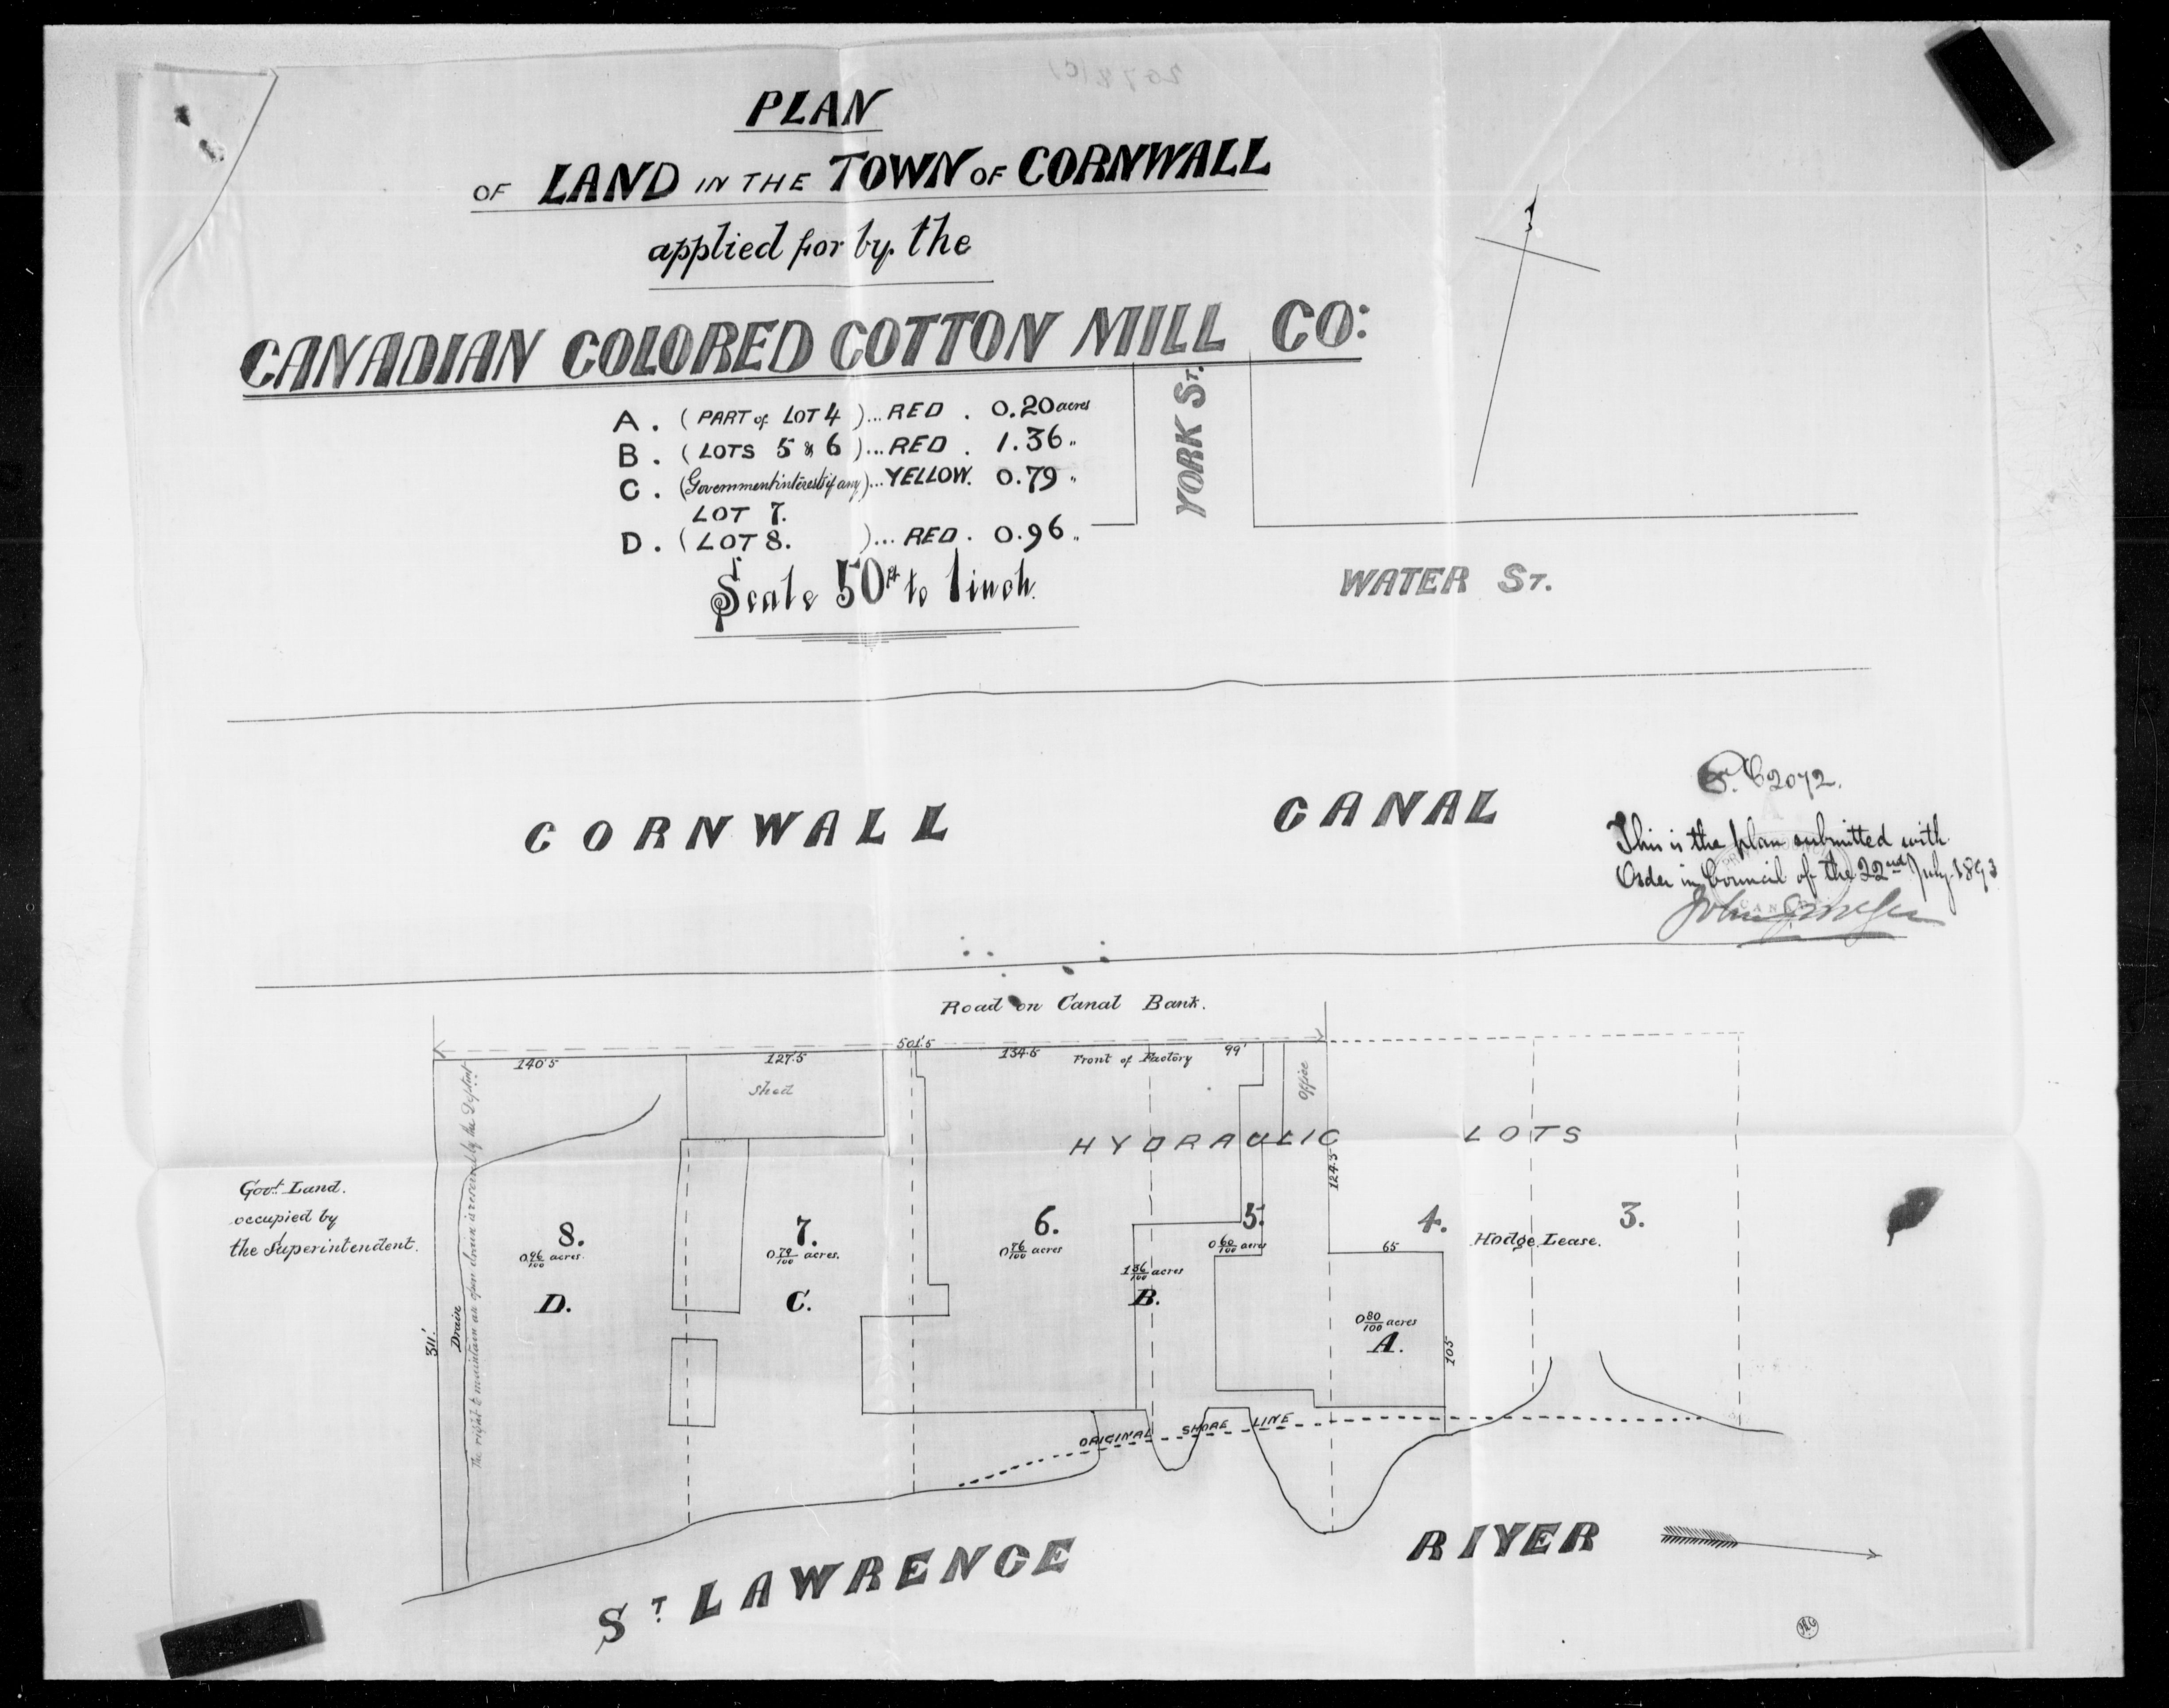 PLAN
OF LAND IN THE TOWN OF CORNWALL
applied for by. the
CANADIAN COLORED COTTON MILL CO:
A. (PART of LOT 4 )... RED . 0.20 acres
B. (LOTS 5 & 6 )... RED . 1.36 "
C. (Government interests if any)... YELLOW. 0.79 "
LOT 7.
D. (LOT 8. )... RED. 0.96 "
Scale 50ft to 1 inch.
YORK ST.
WATER ST.
CORNWALL CANAL
P.C 2072.
This is the plan submitted with
Order in Council of the 22nd July. 1893
Road on Canal Bank.
501'5
140'5
127'5
134.5
Front of Factory
99'
Shed
Office
HYDRAULIC LOTS
124.5
Govt. Land.
occupied by
the Superintendent.
8.
0 96/100 acres.
D.
7.
0 79/100 acres.
C.
6.
0 76/100 acres
5.
0 60/100 acres
1 36/100 acres
B.
4.
Hodge Lease.
3.
65
0 80/100 acres
A.
105
311.'
Drain
The right to maintain an open drain is reserved by the Deptmt.
ORIGINAL SHORE LINE
ST. LAWRENCE RIVER